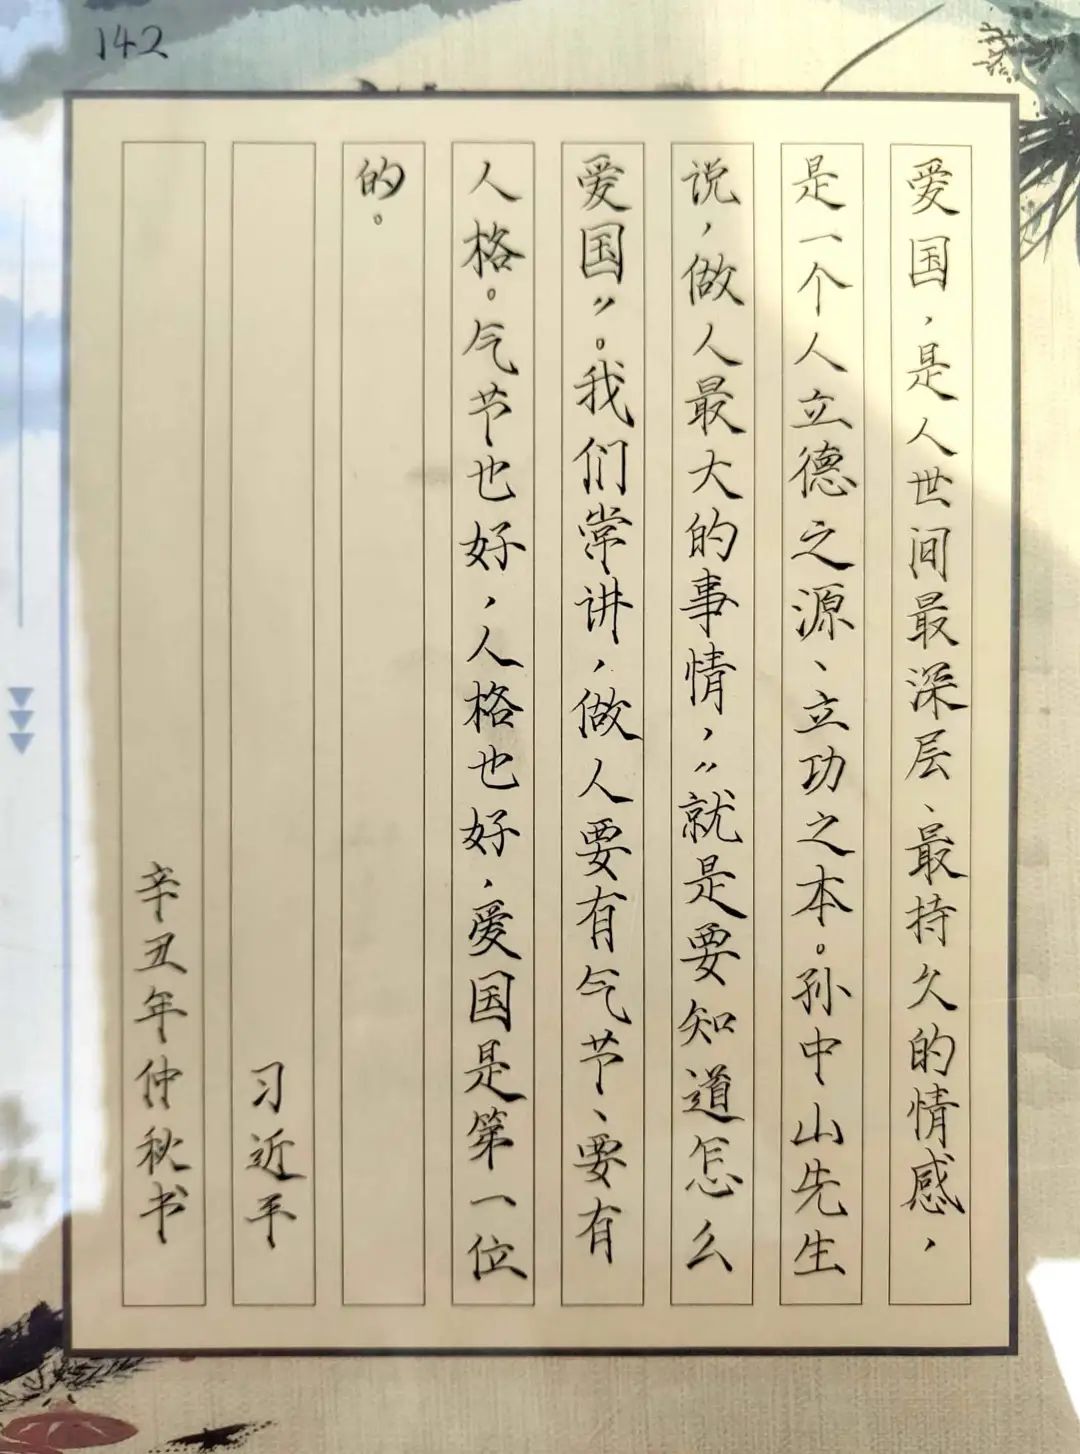 142
爱国，是人世间最深层、最持久的情感，
是一个人立德之源、立功之本。孙中山先生
说，做人最大的事情，〃就是要知道怎么
爱国〃。我们常讲，做人要有气节、要有
人格。气节也好，人格也好，爱国是第一位
的。
习近平
辛丑年仲秋书